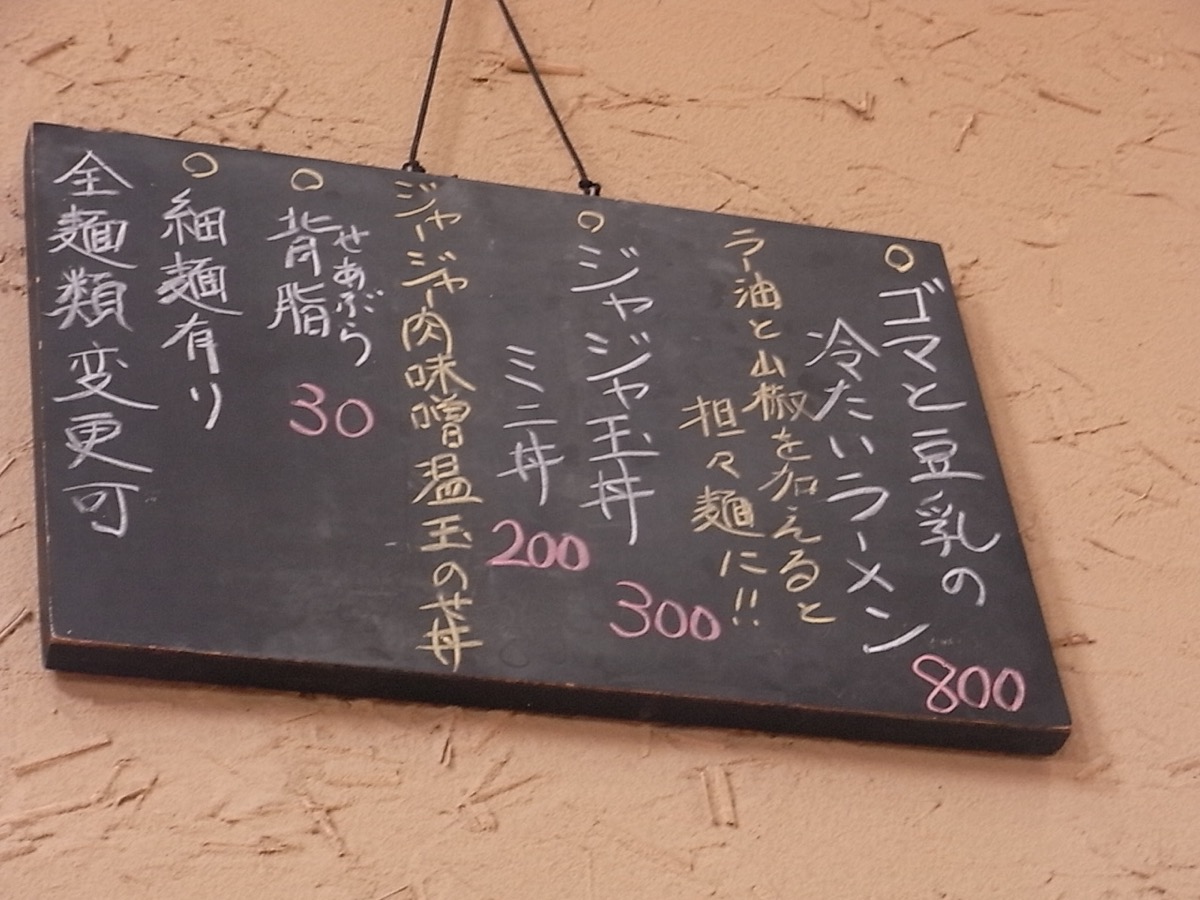 ○ゴマと豆乳の
冷たいラーメン
800
ラー油と山椒を加えると
担々麺に!!
○ジャジャ玉丼
300
ミニ丼
200
ジャージャー肉味噌温玉の丼
○背脂
せあぶら
30
○細麺有り
全麺類変更可